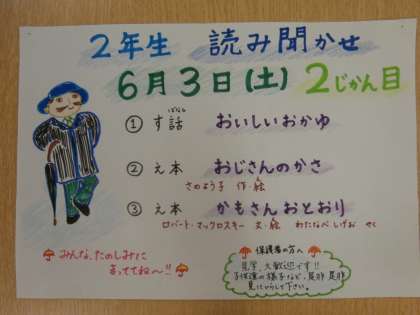 2年生 読み聞かせ
6月3日(土) 2じかん目
① す話 おいしいおかゆ
ばなし
② え本 おじさんのかさ
さのよう子 作・絵
③ え本 かもさんおとおり
ロバート・マックロスキー 文・絵 わたなべ しげお やく
みんな、たのしみに
まっててね〜!!
保護者の方へ
見学、大歓迎です!!
子供達の様子など、是非 是非
見にいらして下さい。